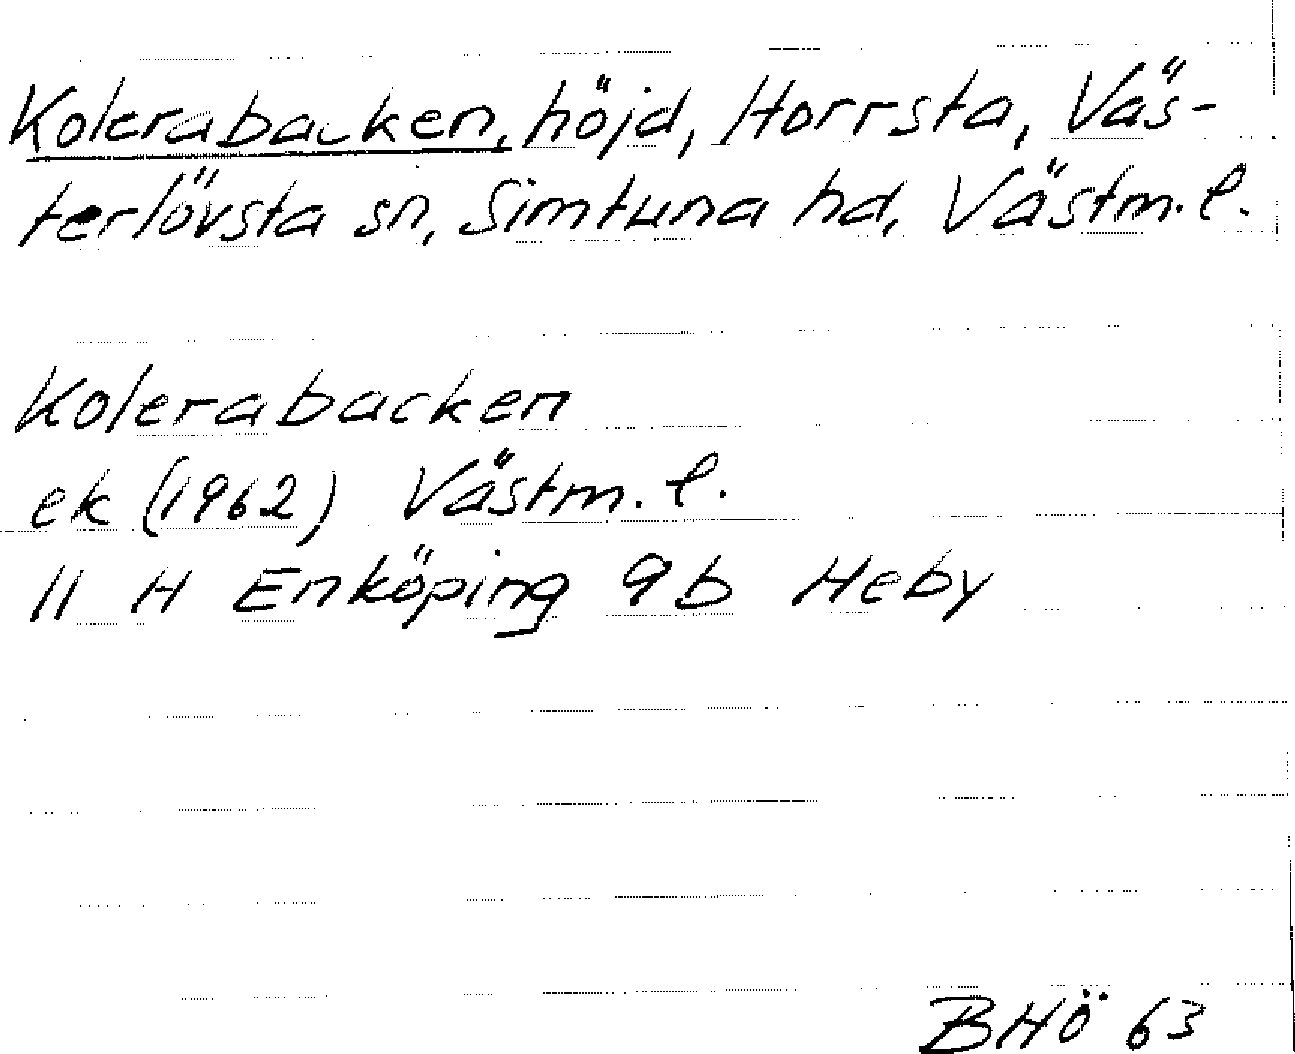 Kolerabacken, höjd, Horrsta, Väs-
terlövsta sn, Simtuna hd, Västm. l.
Kolerabacken
ek (1962) Västm. l.
11 H Enköping 9b Heby
BHÖ 63